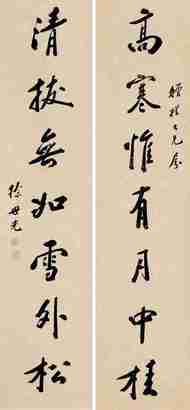 高寒惟有月中桂
清拔無如雪外松